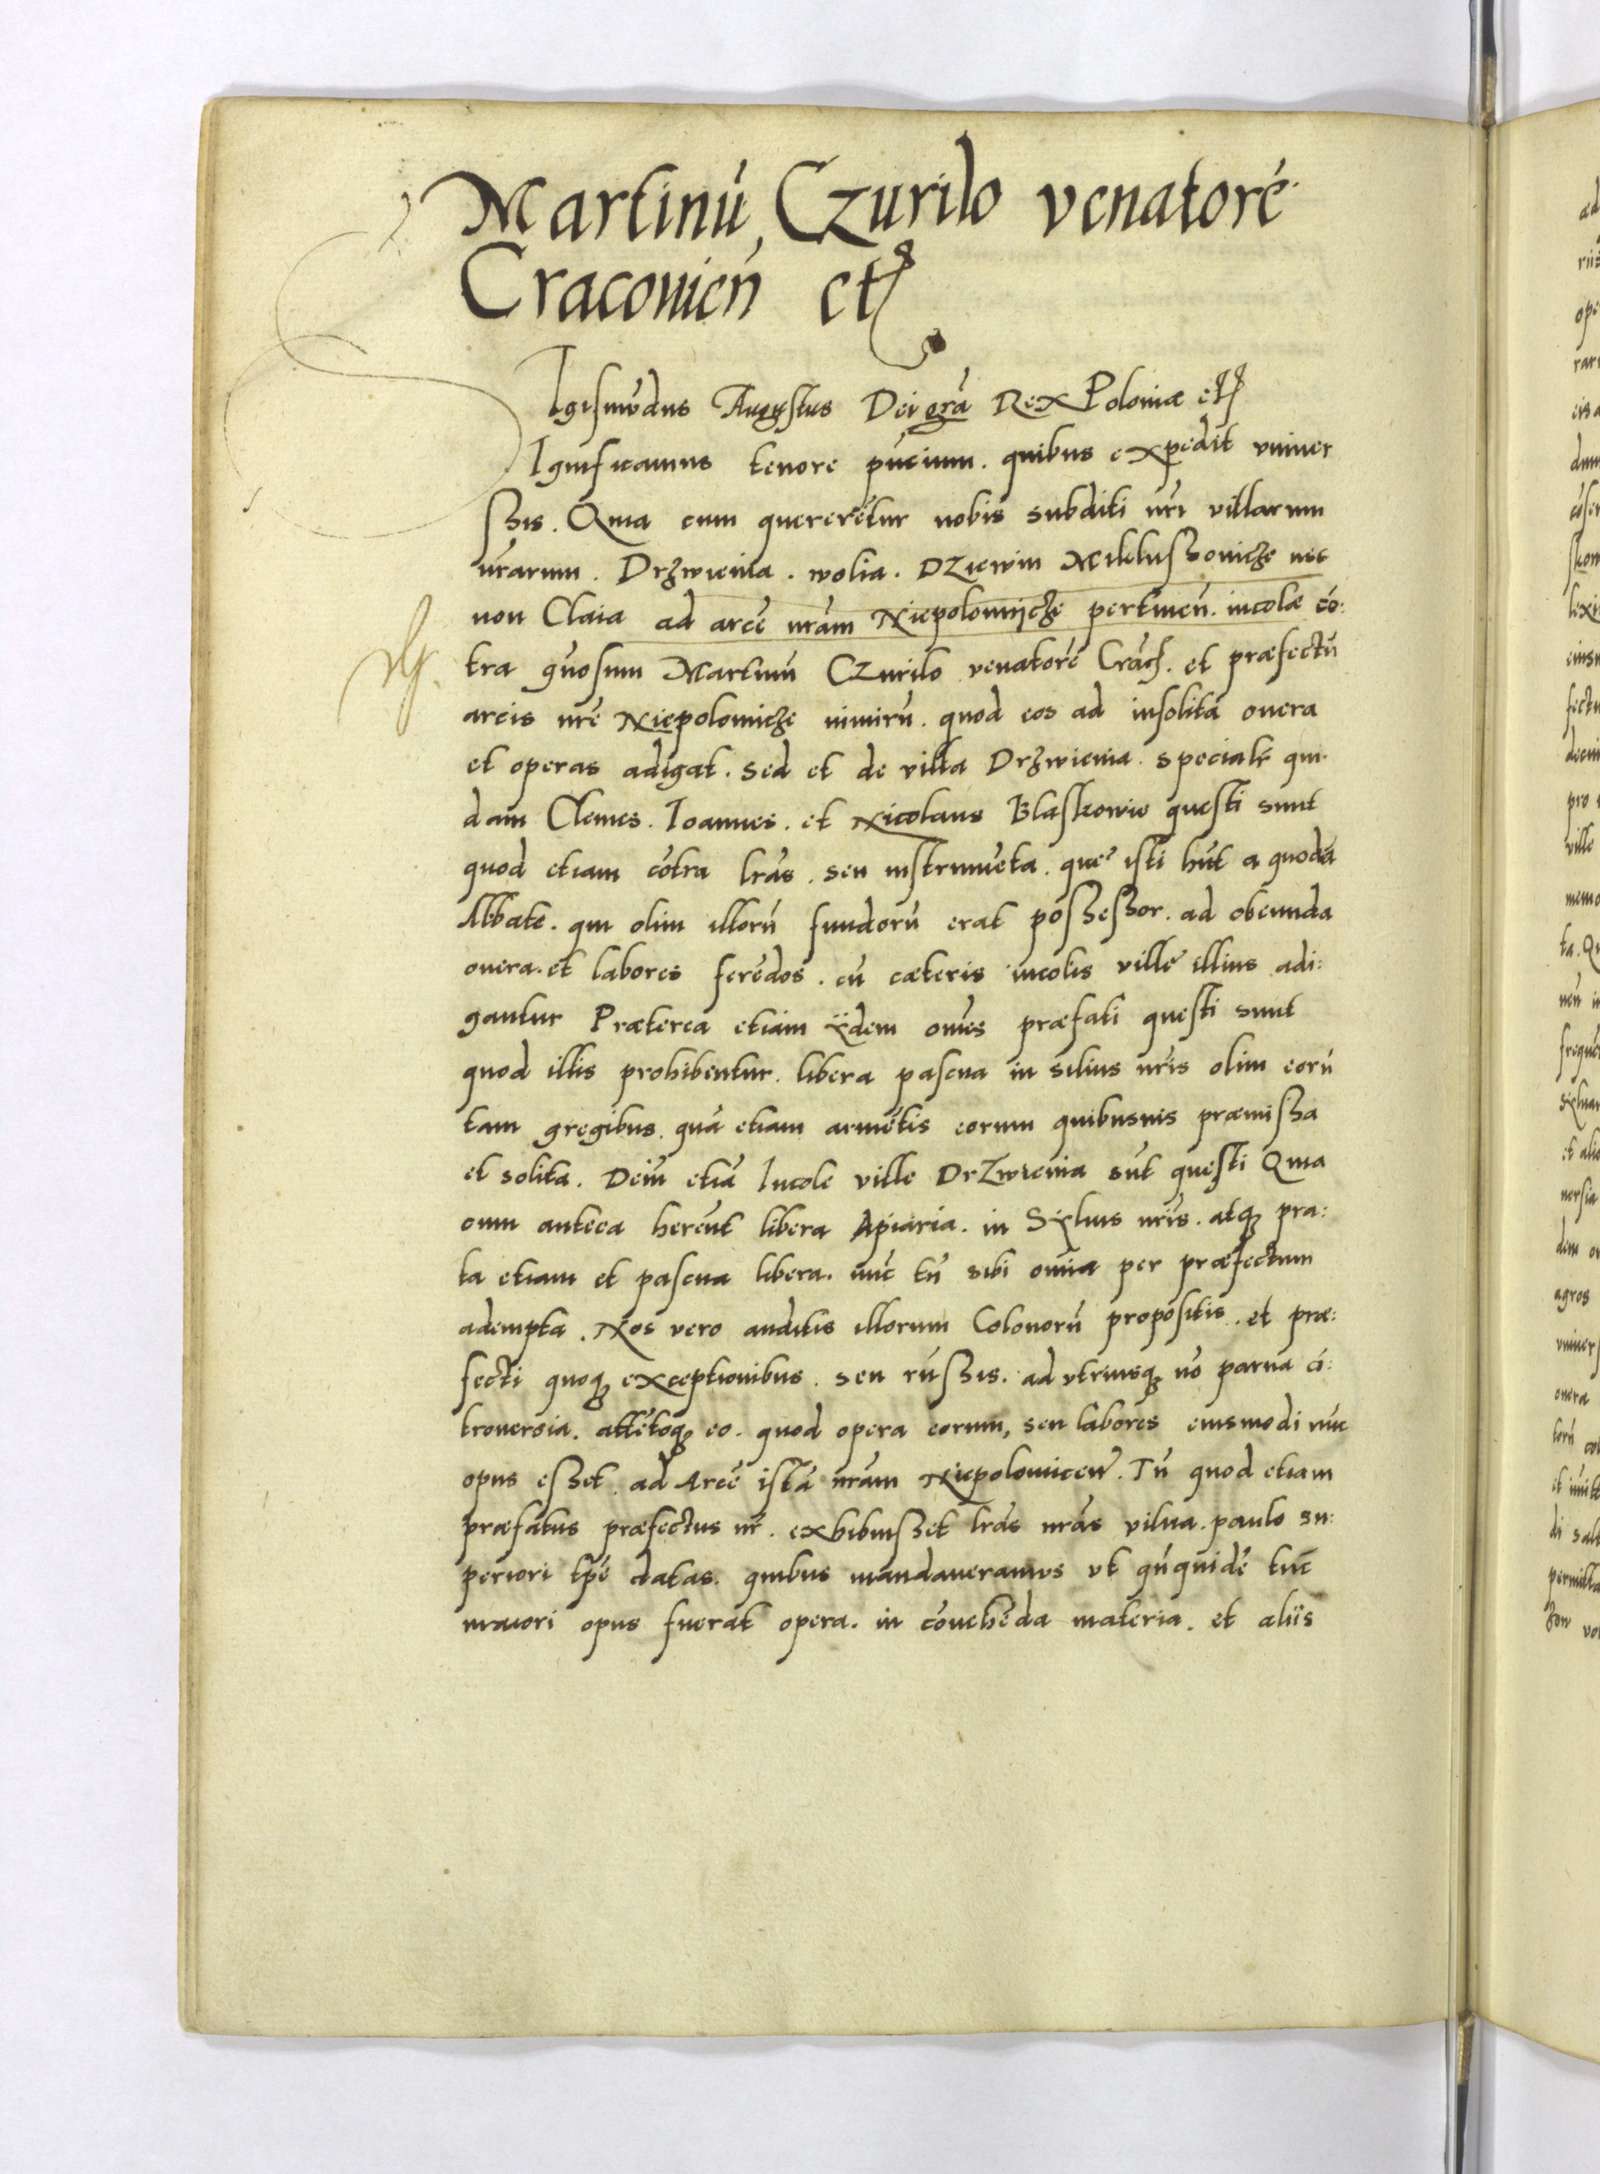 Martinū Czurilo venatorē
Craconien̄ et
Igismūdus Augustus Dei gr̄a Rex Poloniæ et
Ignificamus tenore pn̄cium. quibus expedit vniuer
sżis. Qma cum quererētur nobis subditi nr̄i villarum
nr̄arum. Drzwienia. wolia. Dziewin Miklussouicze nec
non Claia ad arcē nr̄am Niepolomijcze pertinen̄. incolæ cō:
tra gn̄osum Martinū Czurilo venatorē Crac̄. et præfectū
arcis nr̄e Niepolomicze nimirū. quod eos ad insolita onera
et operas adigat. sed et de villa Drzwienia. specialr̄ qui-
dam Clemes. Ioannes. et Nicolaus Blaskowie questi sunt
quod etiam cōtra lr̄as. seu instrumēta. que isti hn̄t a quodā
Abbate. qui olim illorū fundorū erat poszeszor. ad obeunda
onera. et labores ferēdos. cū cæteris incolis ville illius adi:
gantur Præterea etiam ÿdem om̄es præfati questi sunt
quod illis prohibentur. libera pascua in siluis nr̄is olim eorū
tam gregibus. quā etiam armētis eorum quibusuis præmisza
et solita. Dein̄ etiā Incole ville Drzwienia sūt questi Qma
cum antea herēut libera Apiaria. in Sÿluis nr̄is. atq pra:
ta etiam et pascua libera. nūc tn̄ sibi om̄ia per præfectum
adempta. Nos vero auditis illorum Colonorū propositis. et præ:
fecti quoq exceptionibus. seu rūszis. ad vtriusq nō parua cō:
trouersia. attētoq eo. quod opera eorum, seu labores eiusmodi nūc
opus eszet. ad Arcē istā nr̄am Niepolomicen̄. Tū quod etiam
præfatus præfectus nr̄. exhibuiszet lr̄as nr̄as vilna. paulo su:
periori tp̄e datas. quibus mandaueramus vt qn̄quidē tūc
maiori opus fuerat opera. in cōuehēda materia. et aliis